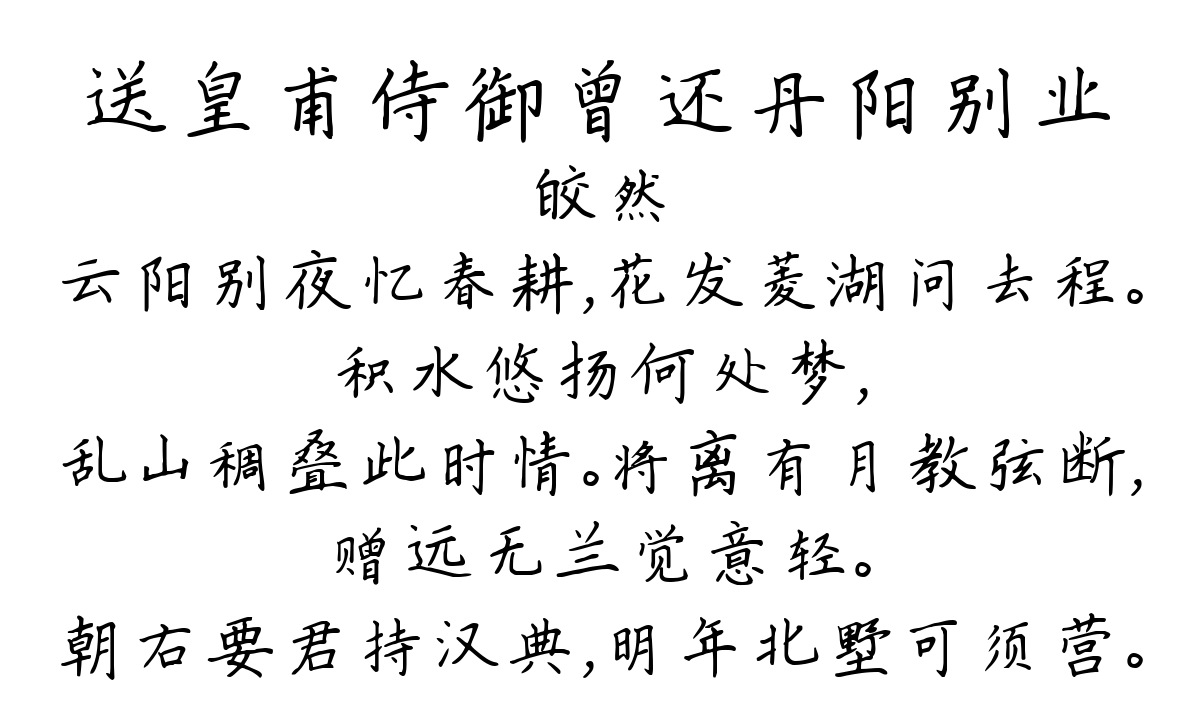 送皇甫侍御曾还丹阳别业
皎然
云阳别夜忆春耕,花发菱湖问去程。
积水悠扬何处梦,
乱山稠叠此时情。将离有月教弦断,
赠远无兰觉意轻。
朝右要君持汉典,明年北墅可须营。